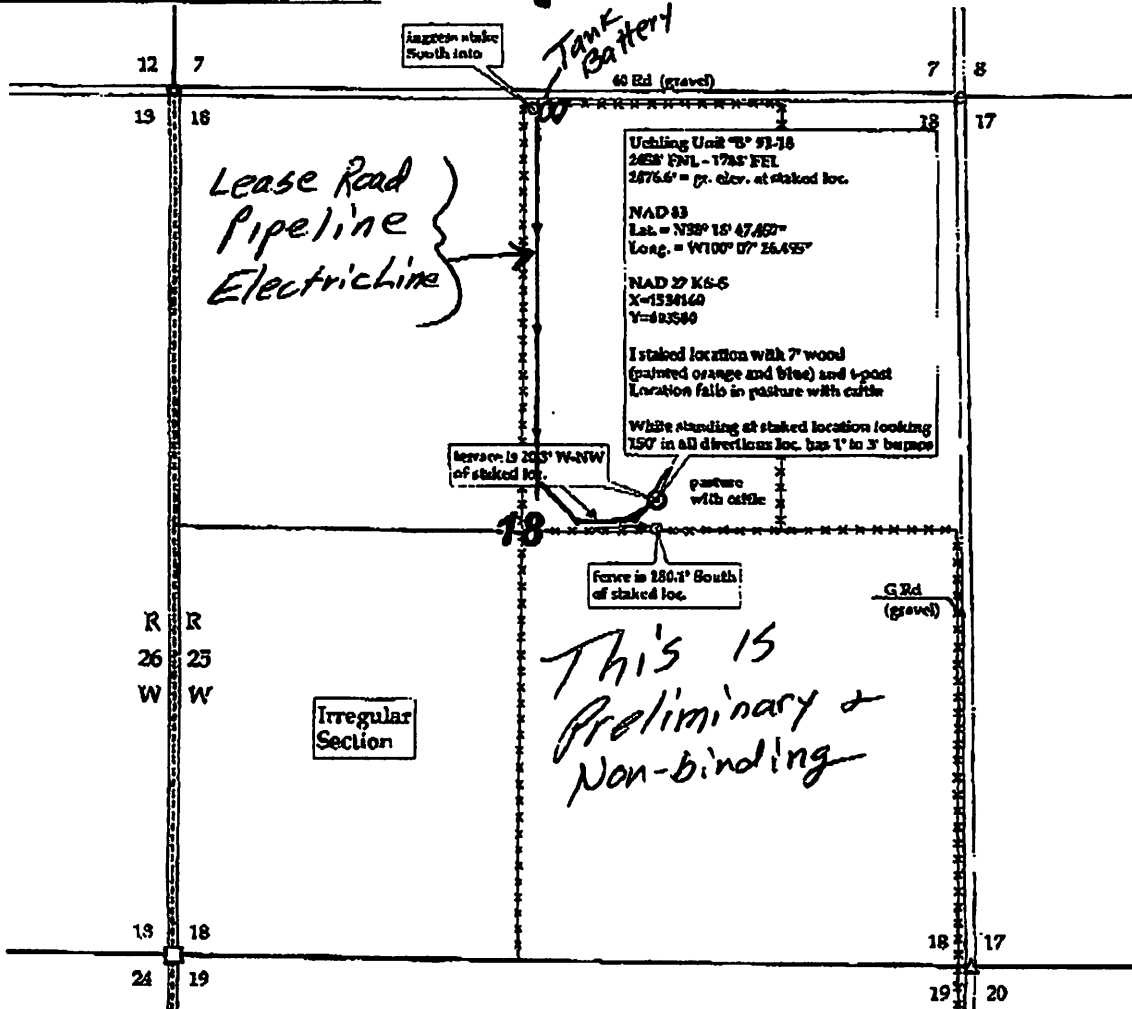 ingress stake
South into
Tank
Battery
60 Rd (gravel)
12 7
7 8
13 18
18 17
Lease Road
Pipeline
Electric Line
Uehling Unit "B"
FNL - FEL
= gr. elev. at staked loc.
NAD 83
Lat. =
Long. =
NAD 27 KS-S
X=1538160
I staked location with 7' wood
(painted orange and blue) and t-post
Location falls in pasture with cattle
While standing at staked location looking
150' in all directions loc. has 1' to 3' bumps
terrace is W-NW
of staked loc.
pasture
with cattle
18
fence is 180.1' South
of staked loc.
G Rd
(gravel)
R R
26 25
W W
Irregular
Section
This is
Preliminary &
Non-binding
13 18
18 17
24 19
19 20